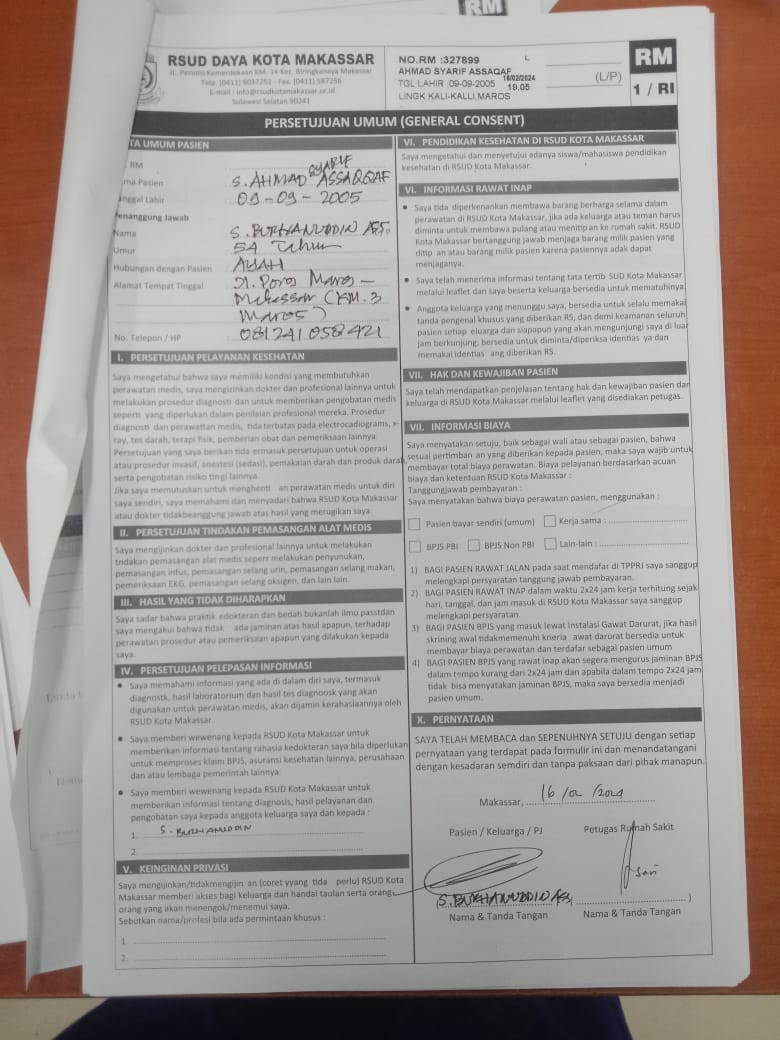 RM
RSUD DAYA KOTA MAKASSAR
JL. Perintis Kemerdekaan KM. 14 Kec. Biringkanaya Makassar
Telp. (0411) 6037252 - Fax. (0411) 587256
E-mail : info@rsudkotamakassar.or.id
Sulawesi Selatan 90241
NO.RM :327899 L
AHMAD SYARIF ASSAQAF 16/02/2024
TGL LAHIR :09-09-2005 19.05
LINGK KALI-KALLI,MAROS
(L/P)
RM
1 / RI
PERSETUJUAN UMUM (GENERAL CONSENT)
TA UMUM PASIEN
RM
ma Pasien : S. AHMAD SYARIF ASSAQQAF
anggal Lahir : 09-09-2005
Penanggung Jawab
Nama : S. BURHANUDDIN ASS.
Umur : 54 Tahun
Hubungan dengan Pasien : AYAH
Alamat Tempat Tinggal : Jl. Poros Maros -
Makassar (KM.3
Maros)
No. Telepon / HP : 081241058421
I. PERSETUJUAN PELAYANAN KESEHATAN
Saya mengetahui bahwa saya memiliki kondisi yang membutuhkan
perawatan medis, saya mengizinkan dokter dan profesional lainnya untuk
melakukan prosedur diagnosti dan untuk memberikan pengobatan medis
seperti yang diperlukan dalam penilaian profesional mereka. Prosedur
diagnosti dan perawattan medis, tida terbatas pada electrocadiograms, x-
ray, tes darah, terapi fisik, pemberian obat dan pemeriksaan lainnya.
Persetujuan yang saya berikan tida ermasuk persetujuan untuk operasi
atau prosedur invasif, anestesi (sedasi), pemakaian darah dan produk darah
serta pengobatan risiko tingi lainnya.
Jika saya memutuskan untuk menghenti an perawatan medis untuk diri
saya sendiri, saya memahami dan menyadari bahwa RSUD Kota Makassar
atau dokter tidakbeanggung jawab atas hasil yang merugikan saya.
II. PERSETUJUAN TINDAKAN PEMASANGAN ALAT MEDIS
Saya mengijinkan dokter dan profesional lainnya untuk melakukan
tndakan pemasangan alat medis seperr melakukan penyunukan,
pemasangan infus, pemasangan selang urin, pemasangan selang makan,
pemeriksaan EKG, pemasangan selang oksigen, dan lain lain.
III. HASIL YANG TIDAK DIHARAPKAN
Saya sadar bahwa praktik edokteran dan bedah bukanlah ilmu passtdan
saya mengakui bahwa tidak ada jaminan atas hasil apapun, terhadap
perawatan prosedur atau pemeriksaan apapun yang dilakukan kepada
saya.
IV. PERSETUJUAN PELEPASAN INFORMASI
● Saya memahami informasi yang ada di dalam diri saya, termasuk
diagnostk, hasil laboratorium dan hasil tes diagnoosk yang akan
digunakan untuk perawatan medis, akan dijamin kerahasiaannya oleh
RSUD Kota Makassar.
● Saya memberi wewenang kepada RSUD Kota Makassar untuk
memberikan informasi tentang rahasia kedokteran saya bila diperlukan
untuk memproses klaim BPJS, asuransi kesehatan lainnya, perusahaan
dan atau lembaga pemerintah lainnya.
● Saya memberi wewenang kepada RSUD Kota Makassar untuk
memberikan informasi tentang diagnosis, hasil pelayanan dan
pengobatan saya kepada anggota keluarga saya dan kepada :
1. S. BURHANUDDIN
2.
V. KEINGINAN PRIVASI
Saya mengijinkan/tidakmengijin an (coret yyang tida perlu) RSUD Kota
Makassar memberi akses bagi keluarga dan handai taulan serta orang-
orang yang akan menengok/menemui saya.
Sebutkan nama/profesi bila ada permintaan khusus :
1.
2.
VI. PENDIDIKAN KESEHATAN DI RSUD KOTA MAKASSAR
Saya mengetahui dan menyetujui adanya siswa/mahasiswa pendidikan
kesehatan di RSUD Kota Makassar.
VI. INFORMASI RAWAT INAP
● Saya tida diperkenankan membawa barang berharga selama dalam
perawatan di RSUD Kota Makassar, jika ada keluarga atau teman harus
diminta untuk membawa pulang atau menitip an ke rumah sakit. RSUD
Kota Makassar bertanggung jawab menjaga barang milik pasien yang
ditip an atau barang milik pasien karena pasiennya adak dapat
menjaganya.
● Saya telah menerima informasi tentang tata tertib SUD Kota Makassar
melalui leaflet dan saya beserta keluarga bersedia untuk mematuhinya.
● Anggota keluarga yang menunggu saya, bersedia untuk selalu memakai
tanda pengenal khusus yang diberikan RS, dan demi keamanan seluruh
pasien setiap eluarga dan siapapun yang akan mengunjungi saya di luar
jam berkunjung, bersedia untuk diminta/diperiksa identias ya dan
memakai identias ang diberikan RS.
VII. HAK DAN KEWAJIBAN PASIEN
Saya telah mendapatkan penjelasan tentang hak dan kewajiban pasien dan
keluarga di RSUD Kota Makassar melalui leaflet yang disediakan petugas.
VII. INFORMASI BIAYA
Saya menyatakan setuju, baik sebagai wali atau sebagai pasien, bahwa
sesuai pertimban an yang diberikan kepada pasien, maka saya wajib untuk
membayar total biaya perawatan. Biaya pelayanan berdasarkan acuan
biaya dan ketentuan RSUD Kota Makassar :
Tanggungjawab pembayaran :
Saya menyatakan bahwa biaya perawatan pasien, menggunakan :
Pasien bayar sendiri (umum) Kerja sama :
BPJS PBI BPJS Non PBI Lain-lain :
1) BAGI PASIEN RAWAT JALAN pada saat mendafar di TPPRJ saya sanggup
melengkapi persyaratan tanggung jawab pembayaran.
2) BAGI PASIEN RAWAT INAP dalam waktu 2x24 jam kerja terhitung sejak
hari, tanggal, dan jam masuk di RSUD Kota Makassar saya sanggup
melengkapi persyaratan.
3) BAGI PASIEN BPJS yang masuk lewat Instalasi Gawat Darurat, jika hasil
skrining awal tidakmemenuhi krieria awat darurat bersedia untuk
membayar biaya perawatan dan terdafar sebagai pasien umum
4) BAGI PASIEN BPJS yang rawat inap akan segera mengurus jaminan BPJS
dalam tempo kurang dari 2x24 jam dan apabila dalam tempo 2x24 jam
tidak bisa menyatakan jaminan BPJS, maka saya bersedia menjadi
pasien umum.
X. PERNYATAAN
SAYA TELAH MEMBACA dan SEPENUHNYA SETUJU dengan setiap
pernyataan yang terdapat pada formulir ini dan menandatangani
dengan kesadaran semdiri dan tanpa paksaan dari pihak manapun.
Makassar, 16/02/2024
Pasien / Keluarga / PJ Petugas Rumah Sakit
S. BURHANUDDIN ASS sari
Nama & Tanda Tangan Nama & Tanda Tangan